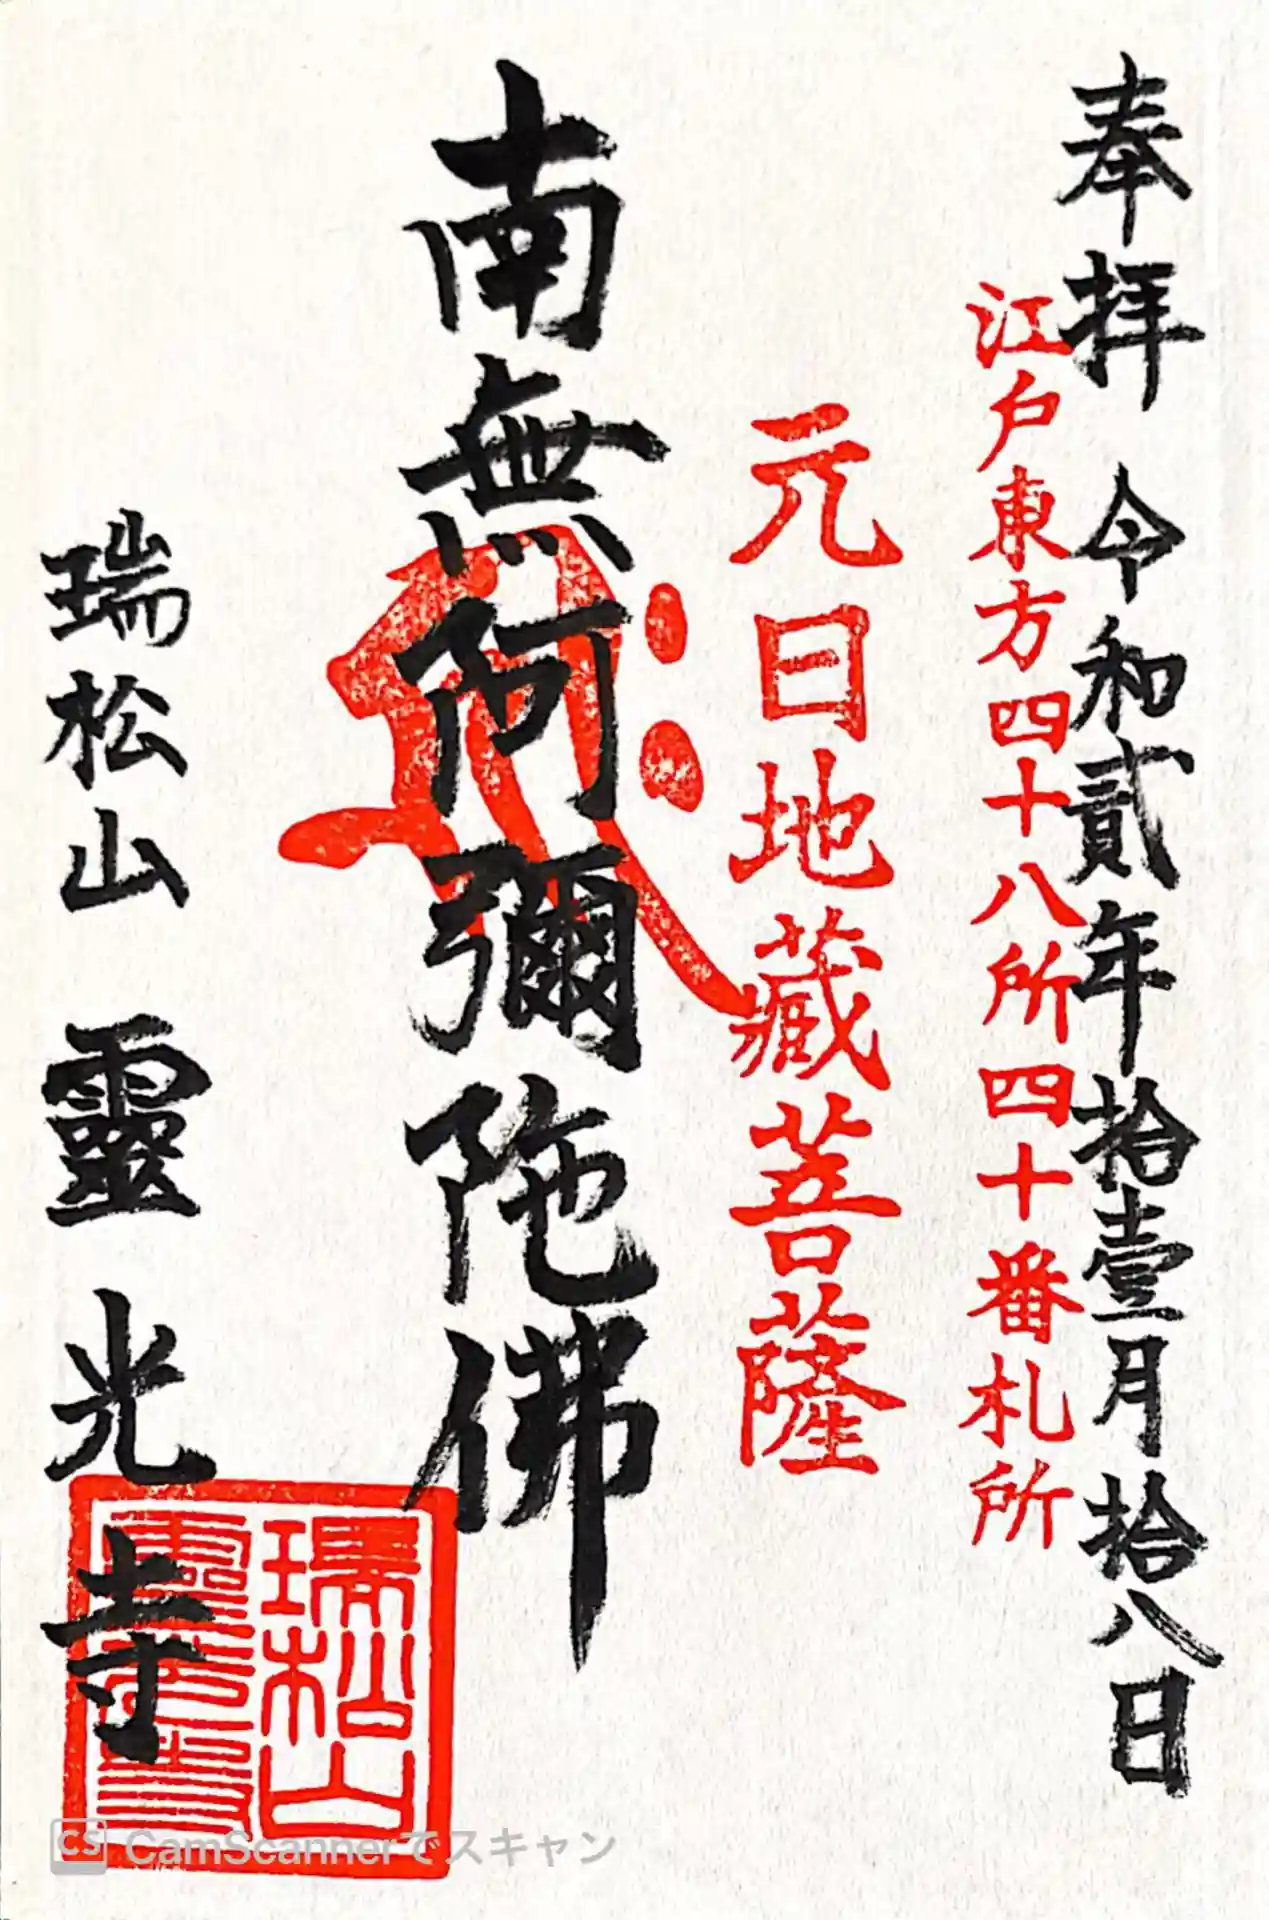 奉拝 令和貳年拾壹月拾八日
江戸東方四十八所四十番札所
元日地蔵菩薩
南無阿彌陀佛
瑞松山 靈光寺
瑞松山
靈光寺
CS CamScannerでスキャン